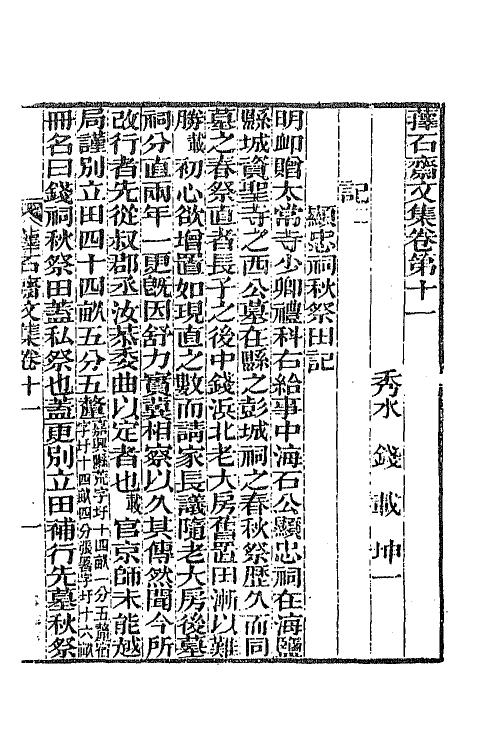 蘀石齋文集卷第十一
秀水　錢　載　坤一
記二
顯忠祠秋祭田記
明卹贈太常寺少卿禮科右給事中海石公顯忠祠在海鹽
縣城資聖寺之西公墓在縣之彭城祠之春秋祭歷久而同
墓之春祭直者長子之後中錢浜北老大房舊置田漸以難
勝載初心欲增置如現直之數而請家長議隨老大房後墓
祠分直兩年一更旣因舒力實冀相察以久其傳然聞今所
改行者先從叔郡丞汝恭委曲以定者也載官京師未能越
局謹別立田四十四畝五分五釐嘉興縣荒字圩十四畝一分五釐宿字圩十四畝四分張字圩十六畝
冊名曰錢祠秋祭田蓋私祭也蓋更別立田補行先墓秋祭
蘀石齋文集卷十一　一